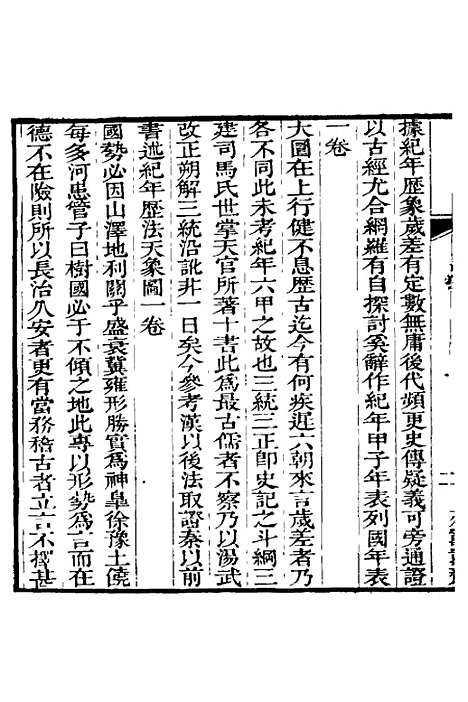 據紀年歷象歲差有定數無庸後代頻更史傳疑義可旁通證
以古經尤合網羅有自探討奚辭作紀年甲子年表列國年表
一卷
大圜在上行健不息歷古迄今有何疾遲六朝來言歲差者乃
各不同此未考紀年六甲之故也三統三正卽史記之斗綱三
建司馬氏世掌天官所著十書此爲最古儒者不察乃以湯武
改正朔解三統沿訛非一日矣今參考漢以後法取證秦以前
書述紀年歷法天象圖一卷
國勢必因山澤地利關乎盛衰冀雍形勝實爲神皐徐豫土僥
每多河患管子曰樹國必于不傾之地此專以形勢爲言而在
德不在險則所以長治久安者更有當務稽古者立言不擇甚